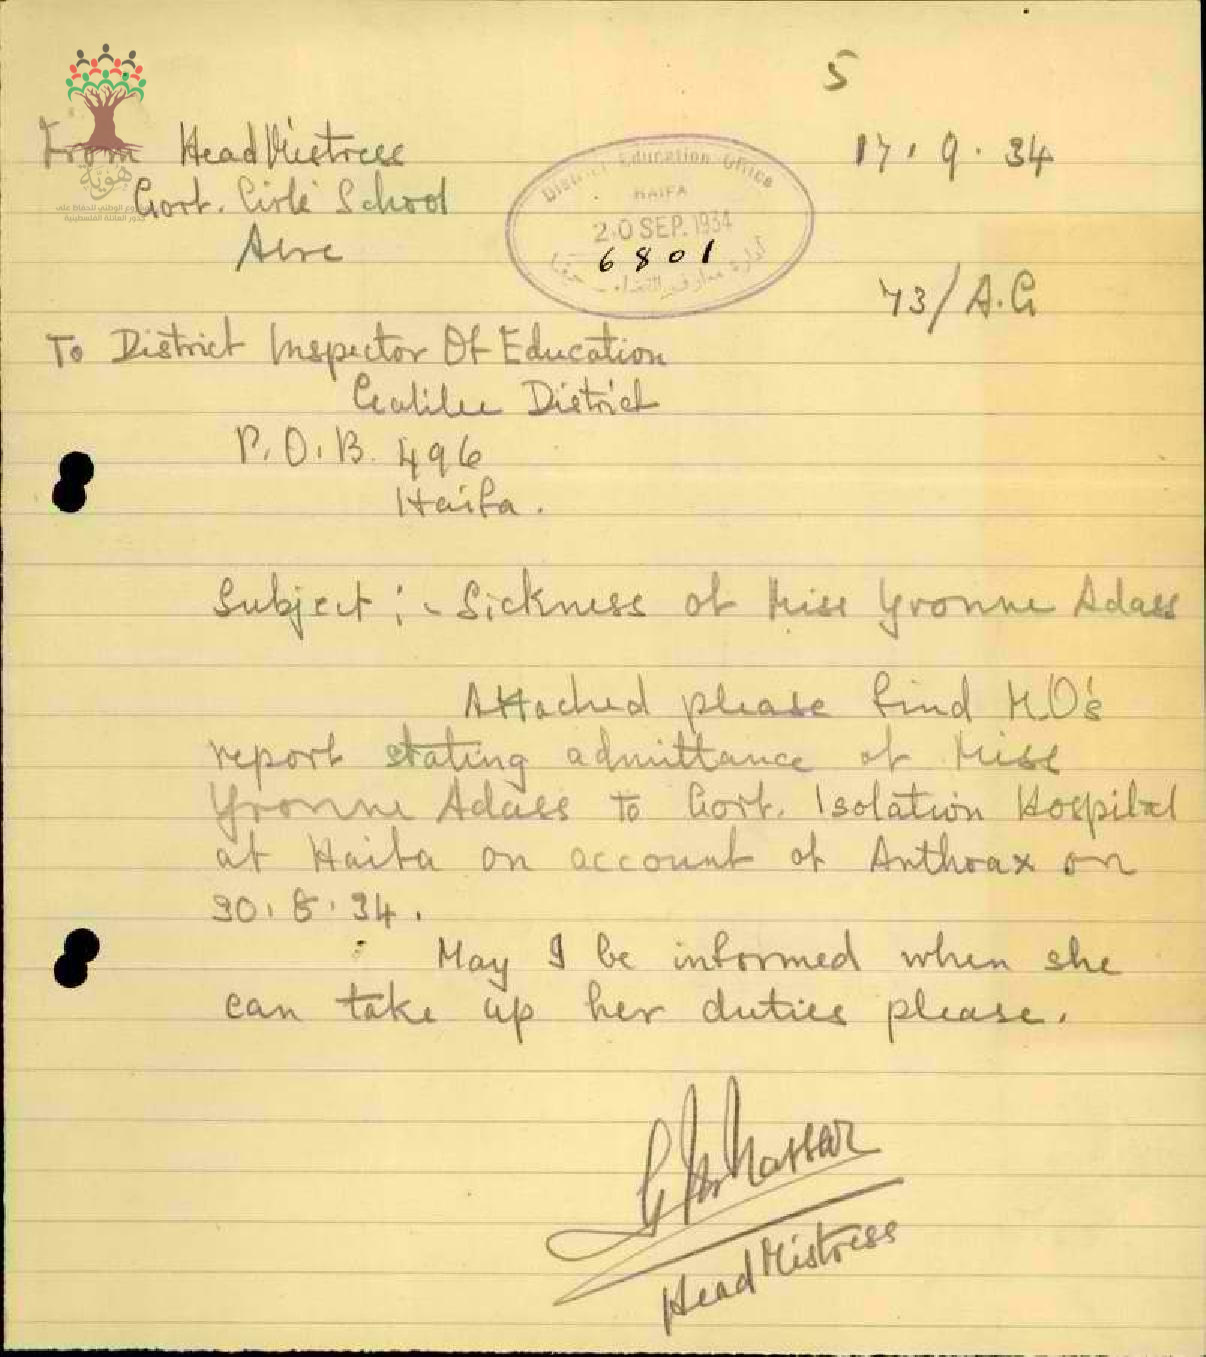 5
From HeadMistress
17.9.34
Govt. Girls' School
Acre
District Education Office
HAIFA
20 SEP. 1934
6801
73/A.G
To District Inspector Of Education
Galilee District
P.O.B. 496
Haifa.
Subject :- Sickness of Miss Yvonne Adass
Attached please find M.O's
report stating admittance of Miss
Yvonne Adass to Govt. Isolation Hospital
at Haifa on account of Anthrax on
30.8.34.
May I be informed when she
can take up her duties please.
Nassar
HeadMistress
هوية